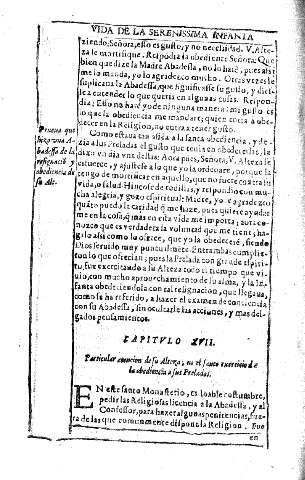 VIDA DE LA SERENISSIMA INFANTA
ziendo: Señora, esso es gusto, y no necessidad. V. Alteza
le mortifique. Respondia la obediente Señora: Que
bien que dize la Madre Abadessa, no lo harè, pues assi
me lo manda, yo lo agradezco mucho. Otras vezes le
suplicaua la Abadessa, que significasse su gusto, y
a entender lo que queria en algunas cosas. Respondia:
Esso no harè yo de ninguna manera: mi gusto es
lo que la obediencia me mandare; quien entra a obedecer
en la Religion, no entra a tener gusto.
Como estaua tan assida a la santa obediencia, y dezia
a las Preladas el gusto que tenia en obedecerlas, la
dixo vn dia vna dellas: Aora pues, Señora, V. Alteza se
y ajustese a lo que yo la ordenare, porque la
tengo de mortificar en aquello, que no fuere contra su
vida, o salud. Hincose de rodillas, y respondio con mucha
alegria, y gozo espiritual: Madre, yo le agradezco
quanto puedo la caridad que me haze, pues quiere ayudarme
en la cosa, que mas en esta vida me importa, aora conozco
que es verdadera la voluntad que me tiene, hagalo
assi como lo ofrece, que yo la obedecerè, siendo
Dios seruido muy puntualmente. Entrambas cumplieron
lo que ofrecian; pues la Prelada con gran de espiritu,
fue exercitando a su Alteza todo el tiempo que viuio,
con mucho aprouechamiento de su alma, y la Infanta
obedeciendola con tal resignacion, que llegaua,
como se ha referido, a hazer el examen de conciencia
con su Abadessa, sin ocultarle las acciones, y mas delgados
pensamientos.
Prueua que
hizo vna Abadessa
de la
resignació y
obediencia de
su Alt.
CAPITVLO XVII.
Particular atencion de su Alteza, en el santo exercicio de
la obediencia a sus Preladas.
EN este santo Monasterio, es loable costumbre,
pedir las Religiosas licencia a la Abadessa, y al
Confessor, para hazer algunas penitencias, fuera
de las que comunmente dispone la Religion. Fue
en